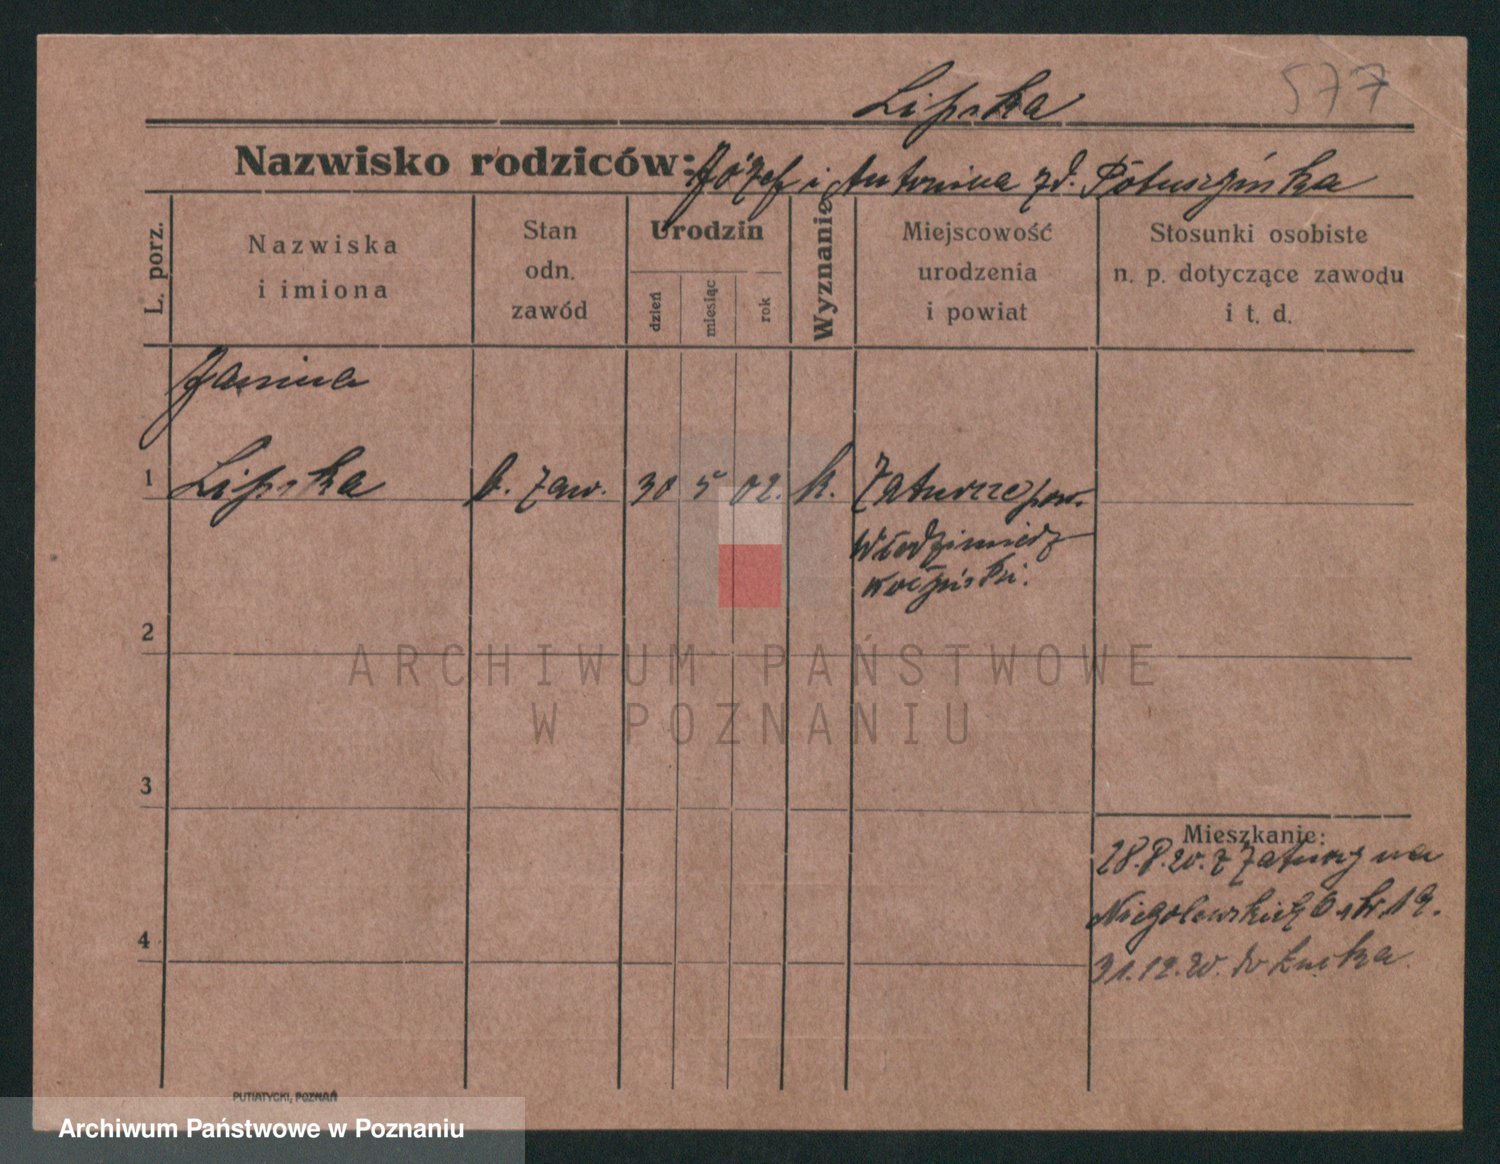 Lipska
577
Nazwisko rodziców: Józef i Antonina zd.
L. porz.
Nazwiska
i imiona
Stan
odn.
zawód
Urodzin
dzień
miesiąc
rok
Wyznanie
Miejscowość
urodzenia
i powiat
Stosunki osobiste
n. p. dotyczące zawodu
i t. d.
Janina
1 Lipska b. zaw. 30 5 02. k. Zaturce pow.
Włodzimierz
wołyński.
2
ARCHIWUM PAŃSTWOWE
W POZNANIU
3
Mieszkanie:
28.8.20. z Zaturcz na
Niegolewskich 6
4
31.12.20. do Łucka.
PUTIATYCKI, POZNAŃ
Archiwum Państwowe w Poznaniu